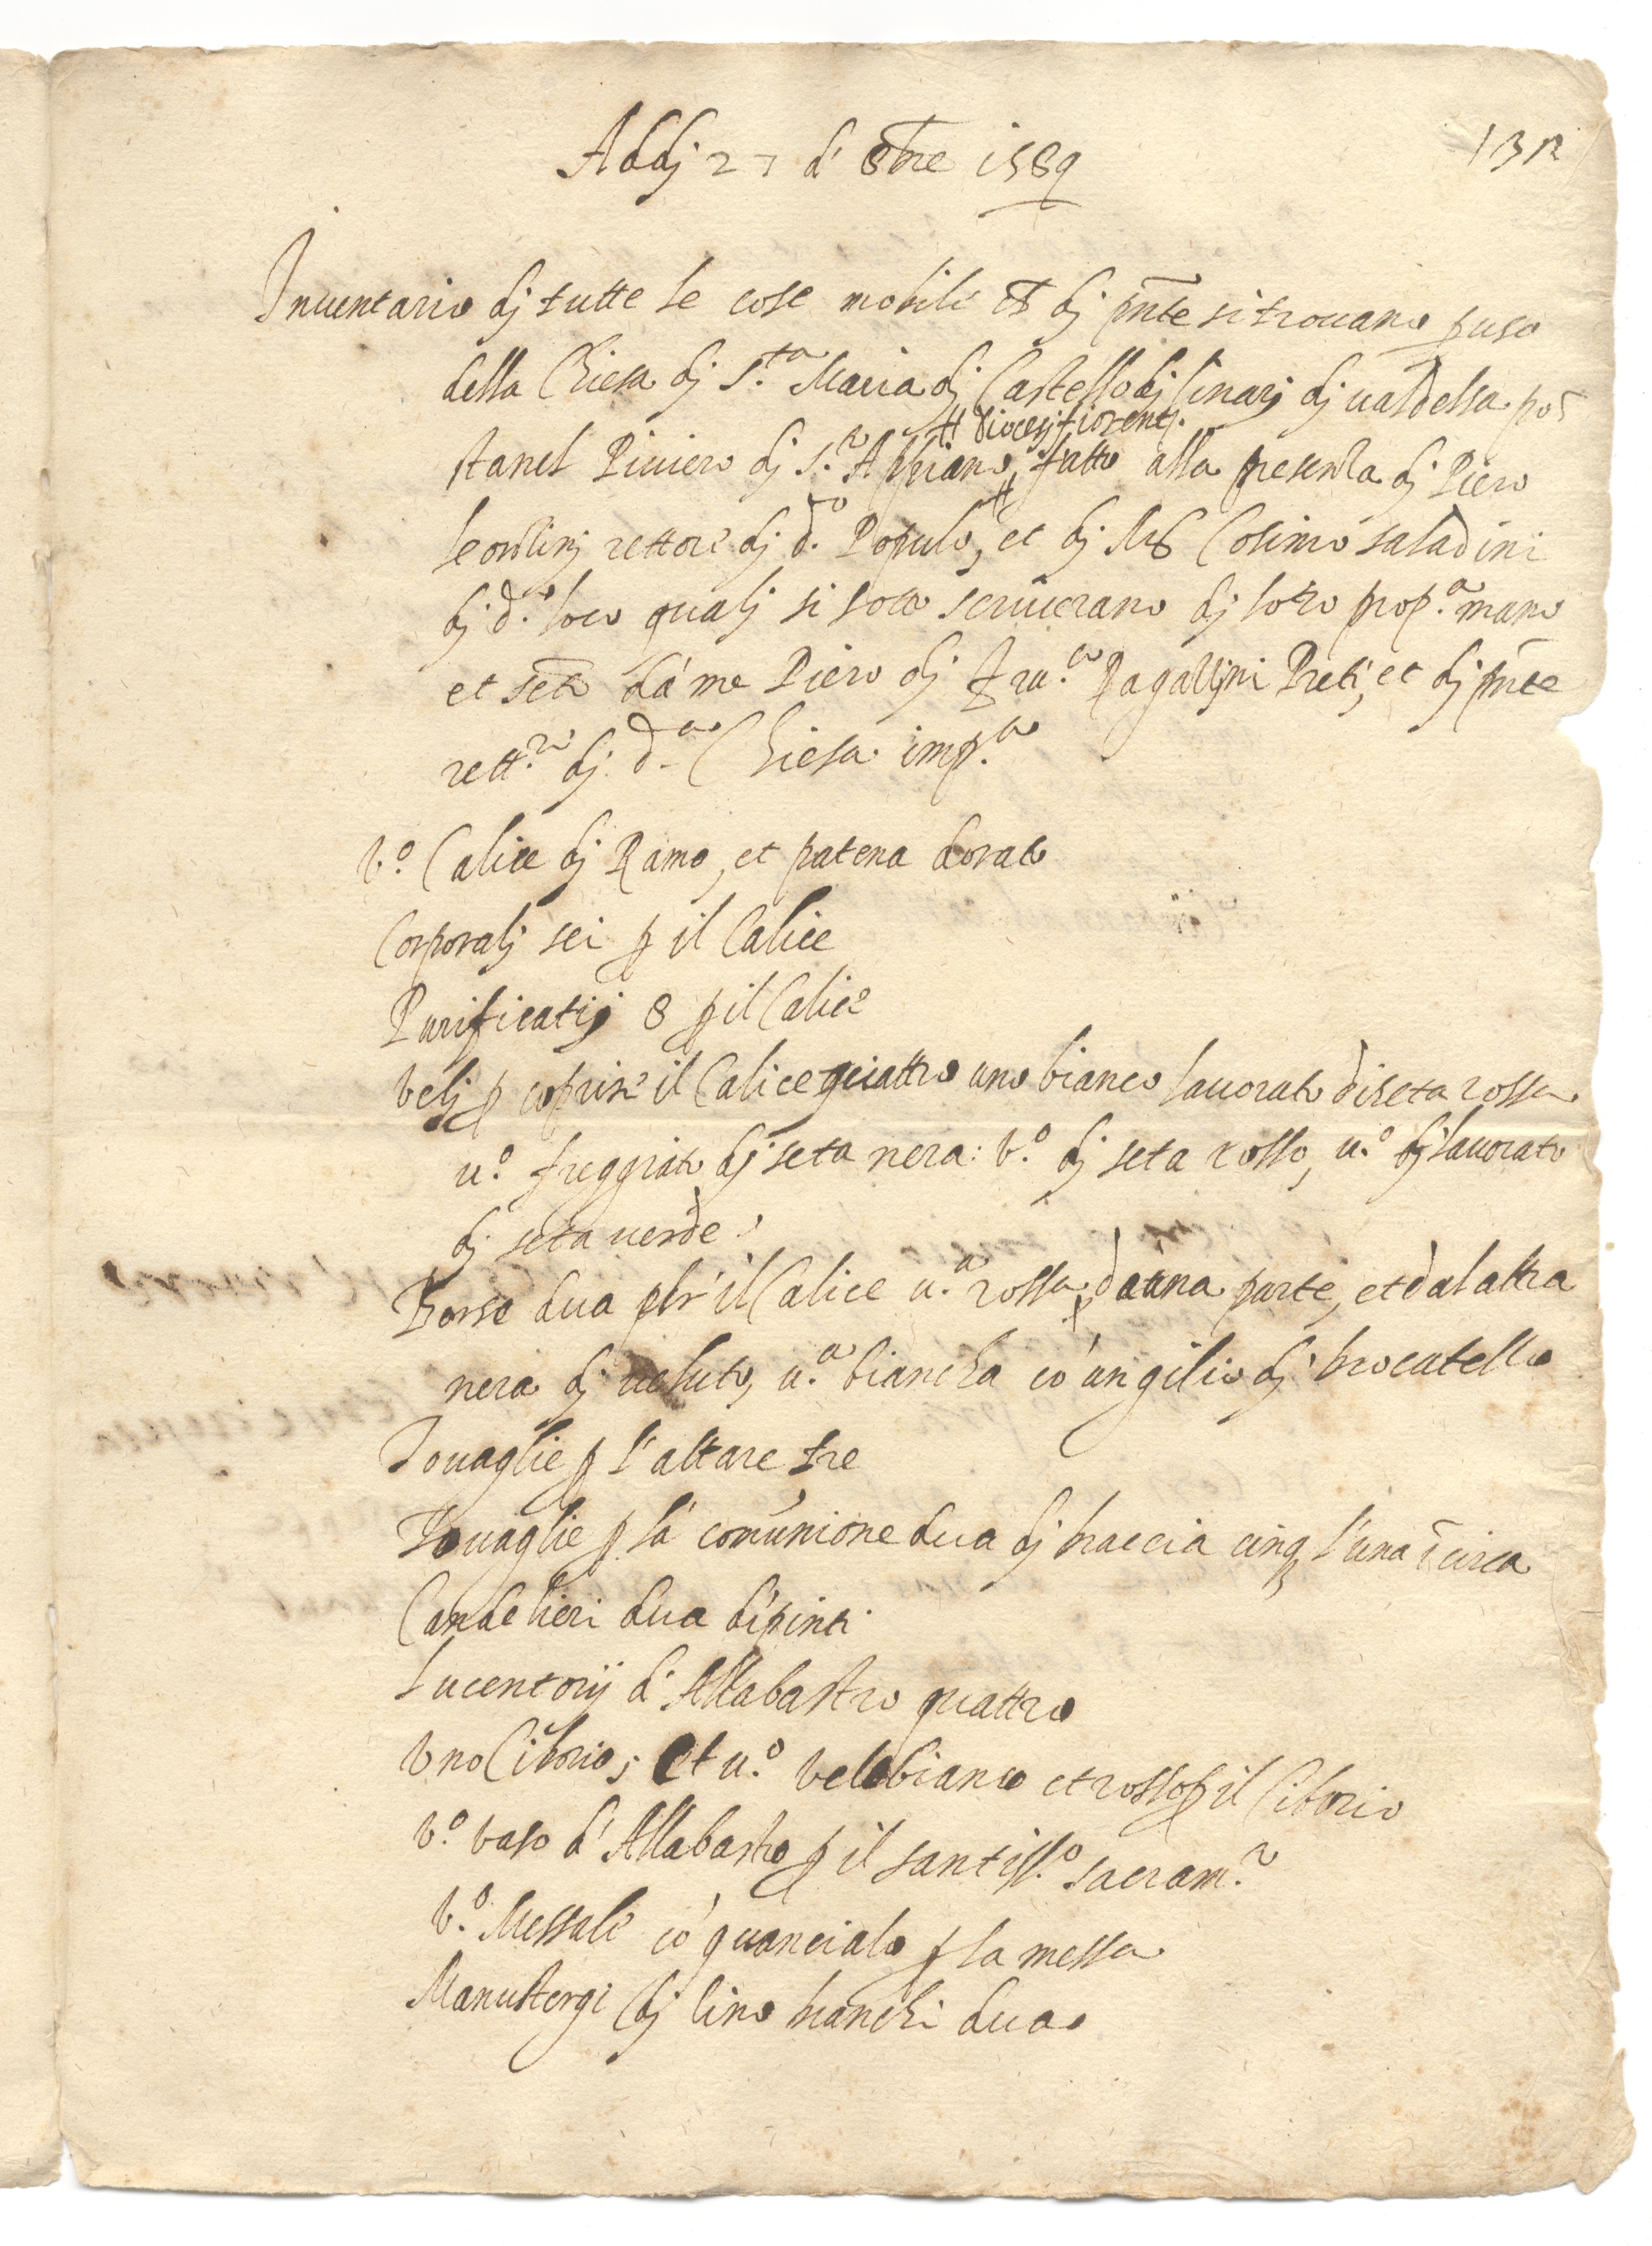 Addj 27 d' 8bre 1589
Inuentario dj tutte le cose mobili ch dj pnte si trouano p uso
della Chiesa dj S.ta Maria dj Castello dj linarj dj ualdelsa pos
# diocesj fiorent.
ta nel Piuiero dj S.to Appiano, # fatto alla presentia dj Piero
leontinj rettore dj d.o Populo, et dj Ms Cosimo saladini
dj d.o loco qualj si sotto scriuerano dj loro prop.a mano
et scto dà me Piero dj fra.co Prete, et dj pnte
rett.re dj d.a Chiesa imp.a
V.o Calice dj Ramo, et patena dorato
Corporalj sei p il Calice
Purificatij 8 p il Calice
Velj p coprire il Calice quattro uno bianco lauorato di seta rossa
u.o freggiato dj seta nera: V.o dj seta rosso, u.o dj lauorato
dj seta uerde
Borse dua per il Calice u.a rossa da una parte, et dal altra
nera dj ueluto, u.a biancha co un gilio dj brocatello
Touaglie p l'altare tre
Touaglie p la comunione dua dj braccia cinq l'una i circa
Candelieri dua dipinti
Lucentorij d'Allabastro quattro
Vno Ciborio; Et u.o Velo bianco et rosso p il Ciborio
V.o Vaso d'Allabastro p il santiss.o sacram.to
V.o Messale cò guanciale p la messa
Manustergi dj lino bianchi dua